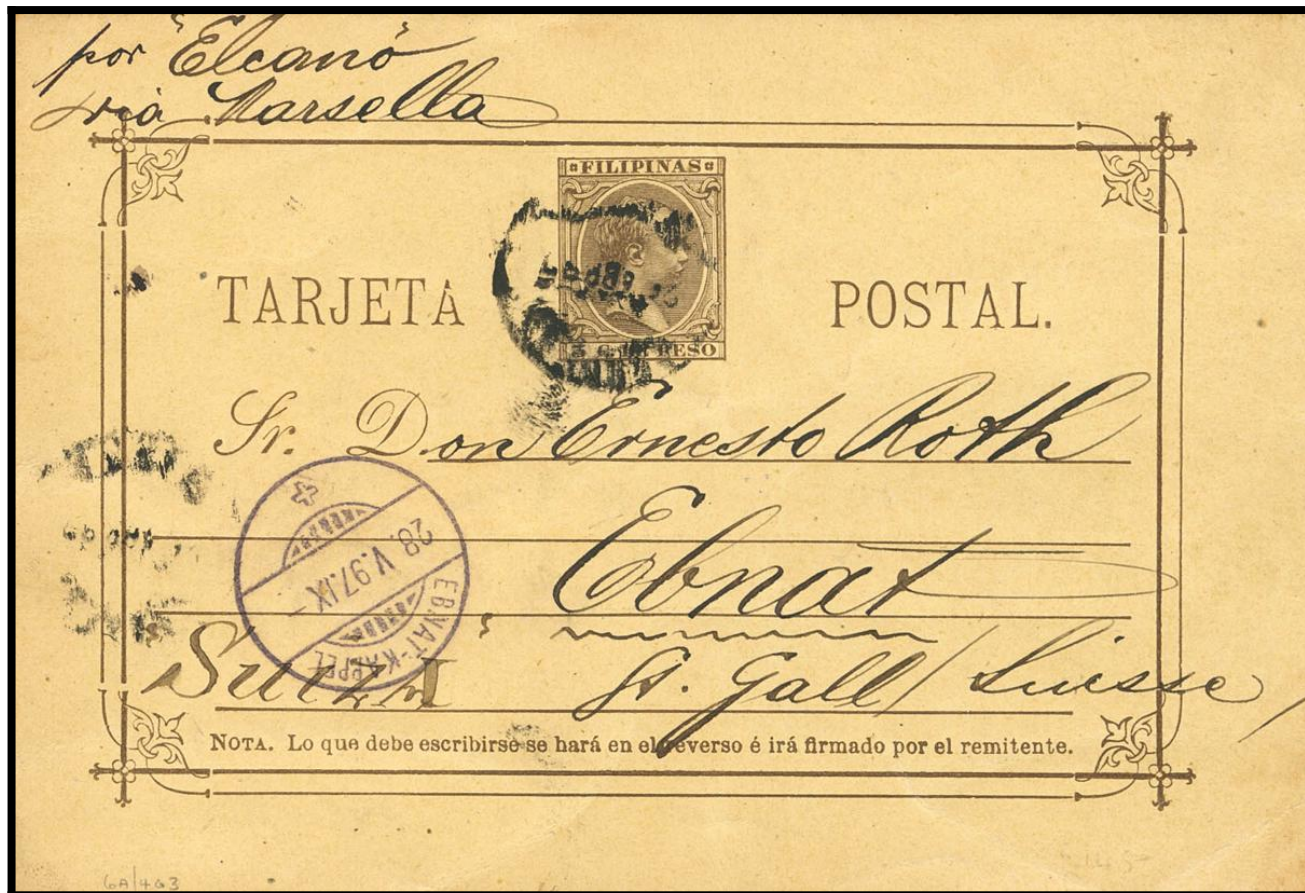 por "Elcano"
via Marsella
FILIPINAS
TARJETA POSTAL.
3 C. DE PESO
Sr. Don Ernesto Roth
Ebnat
St. Gall / Suisse
Suiza
EBNAT-KAPPEL
28. V. 97. IX -
NOTA. Lo que debe escribirse se hará en el reverso é irá firmado por el remitente.
6A/463